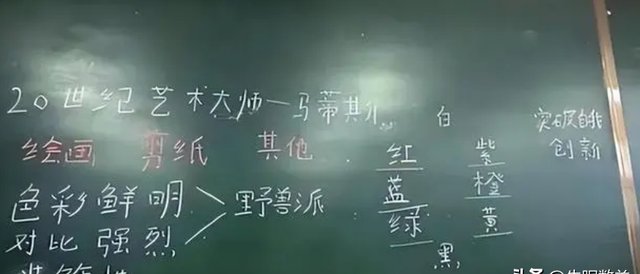 20世纪艺术大师—马蒂斯
绘画 剪纸 其他
色彩鲜明
对比强烈
> 野兽派
白
红 紫
蓝 橙
绿 黄
黑
突破自我
创新